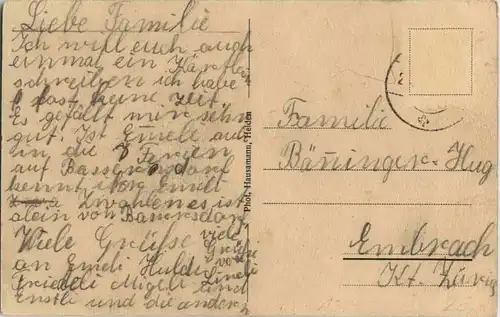 Liebe Familie
Ich will euch auch
einmal ein Kärtlein
schreiben ich habe
fast keine Zeit.
Es gefällt mir sehr
gut. Ist Emeli auch
in die Ferien
auf Bassersdorf
kennt ihr Emeli
Zwahlen es ist
alein von Bassersdorf
Viele Grüsse viele Grüsse
an Emeli Huldi
Friedli Migeli
Ernstli und die andern
Phot. Hausamann, Heiden
Familie
Bänninger-Hug
Embrach
Kt. Zürich